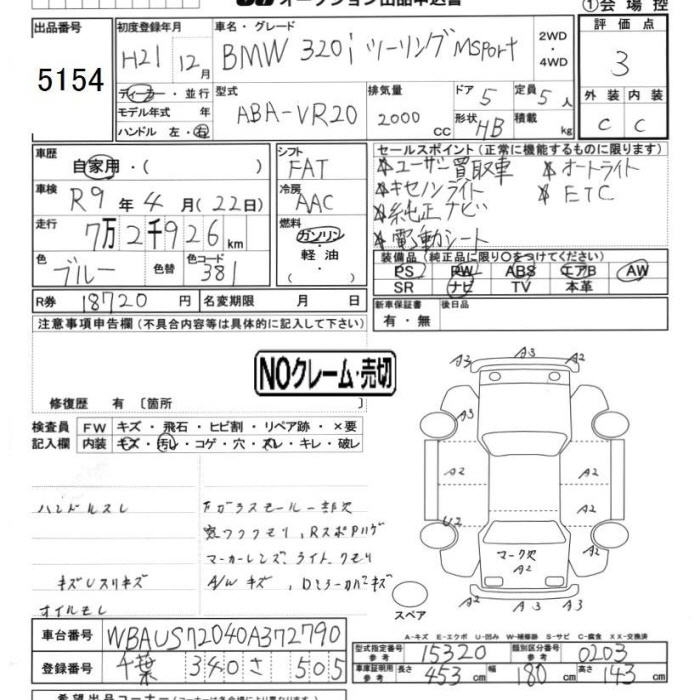 オークション出品申込書
①会場控
出品番号
5154
初度登録年月
H21年 12月
ディーラー・並行
モデル年式 年
ハンドル 左・右
車名・グレード
BMW 320i ツーリング MSport
2WD
・
4WD
型式
ABA-VR20
排気量
2000 cc
ドア 5
定員 5人
形状 HB
積載 kg
評価点
3
外装 内装
C C
車歴
自家用・( )
車検
R9年 4月 (22日)
走行
7万2千926km
色
ブルー
色替
色コード
381
R券 18720円
名変期限 月 日
シフト
FAT
冷房
AAC
燃料
ガソリン・
軽油・
( )
セールスポイント(正常に機能するものに限ります)
ユーザー買取車 オートライト
キセノンライト ETC
純正ナビ
電動シート
装備品(純正品に限り○をつけてください)
PS PW ABS エアB AW
SR ナビ TV 本革
新車保証書
有・無
後日品
注意事項申告欄(不具合内容等は具体的に記入して下さい)
NOクレーム・売切
修復歴 有 〔箇所 〕
検査員
記入欄
FW キズ・飛石・ヒビ割・リペア跡・×要
内装 キズ・汚レ・コゲ・穴・スレ・キレ・破レ
ハンドルスレ
Fガラスモール一部欠
マーカーレンズ、ライト、クモリ
キズUスリキズ
A/Wキズ、Dミラーカバーキズ
オイルモレ
A3 A3 A2
A3
A2 A2 A2
U2 A3
マーク欠
A2
A2 A3 A2
スペア
A-キズ E-エクボ U-凹み W-補修跡 S-サビ C-腐食 XX-交換済
車台番号
WBAUS72040A372790
登録番号
千葉 340 さ 505
型式指定番号
参考
15320
類別区分番号
参考
0203
車庫証明用
参考
長さ 453cm 幅 180cm 高さ 143cm
希望出品コーナー